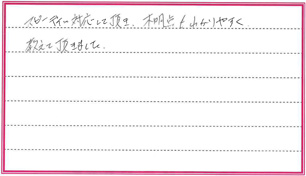 スピーディー対応して頂き、不明点もわかりやすく
教えて頂きました。